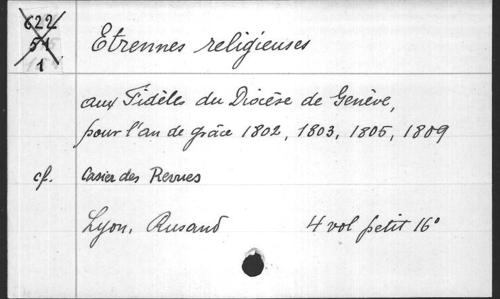 622
51
1
Etrennes religieuses
aux Fidèles du Diocèse de Genève,
pour l'an de grâce 1802, 1803, 1805, 1809
cf. Casier des Revues
Lyon, Rusand 4 vol petit 16°